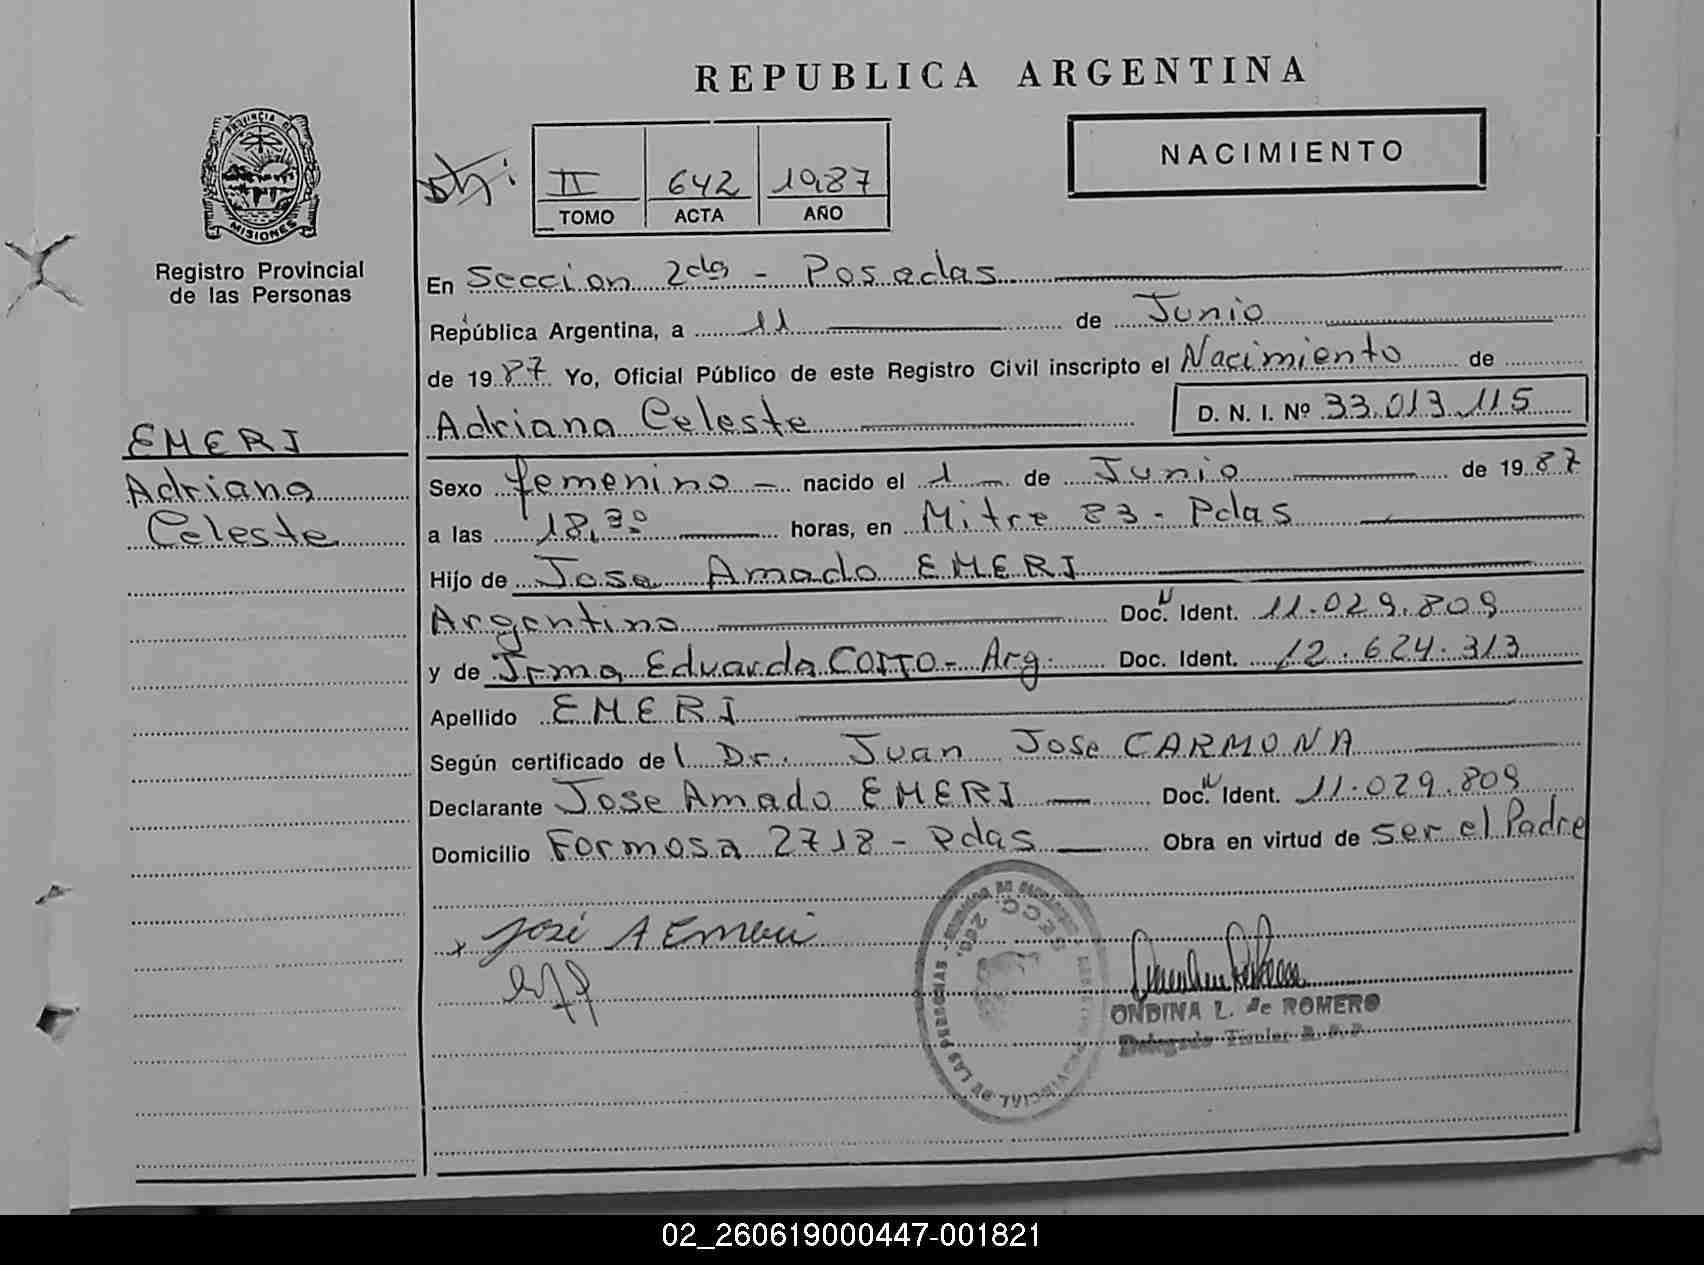 REPUBLICA ARGENTINA
PROVINCIA DE
MISIONES
Registro Provincial
de las Personas
II 642 1987
TOMO ACTA AÑO
NACIMIENTO
En Seccion 2da - Posadas
República Argentina, a 11 de Junio
de 1987 Yo, Oficial Público de este Registro Civil inscripto el Nacimiento de
Adriana Celeste D. N. I. Nº 33.013.115
EMERI
Adriana
Celeste
Sexo femenino - nacido el 1 de Junio de 1987
a las 18,30 horas, en Mitre 83 - Pdas
Hijo de Jose Amado EMERI
Argentino Doc. Ident. 11.029.809
y de Irma Eduarda COTTO - Arg. Doc. Ident. 12.624.313
Apellido EMERI
Según certificado del Dr. Juan Jose CARMONA
Declarante Jose Amado EMERI Doc. Ident. 11.029.809
Domicilio Formosa 2718 - Pdas Obra en virtud de ser el Padre
x José A Emeri
SECC. 2da.
PROVINCIAL DE LAS PERSONAS
ONDINA L. de ROMERO
Delegado Titular
02_260619000447-001821